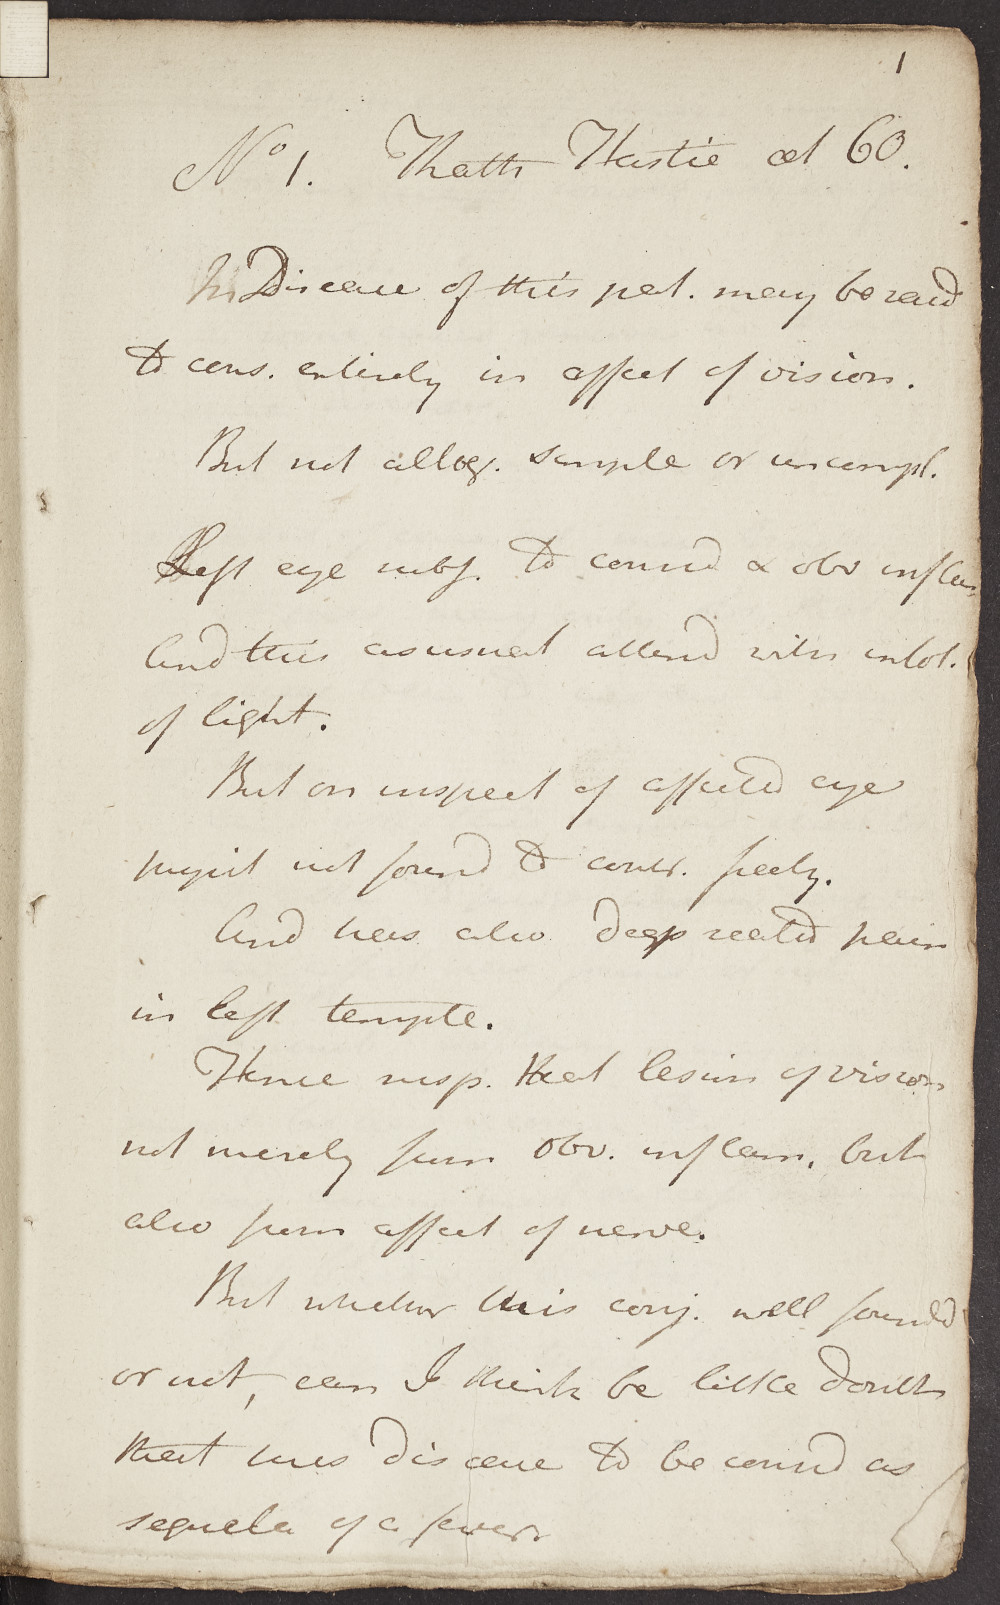 1
No 1. Hastie æt 60.
Disease of this pat. may be said
to cons. entirely in affect of vision.
But not altog. simple or uncompl.
Left eye subj. to consid & obv inflam
And this as usual attend with intol.
of light.
But on inspect of affected eye
pupil not found to contr. freely.
And has also deep seated pain
in left temple.
Hence susp. that lesion of vision
not merely from obv. inflam, but
also from affect of nerve.
But whether this conj. well founded
or not, can I think be little doubt
that this disease to be consid as
sequela of a fever